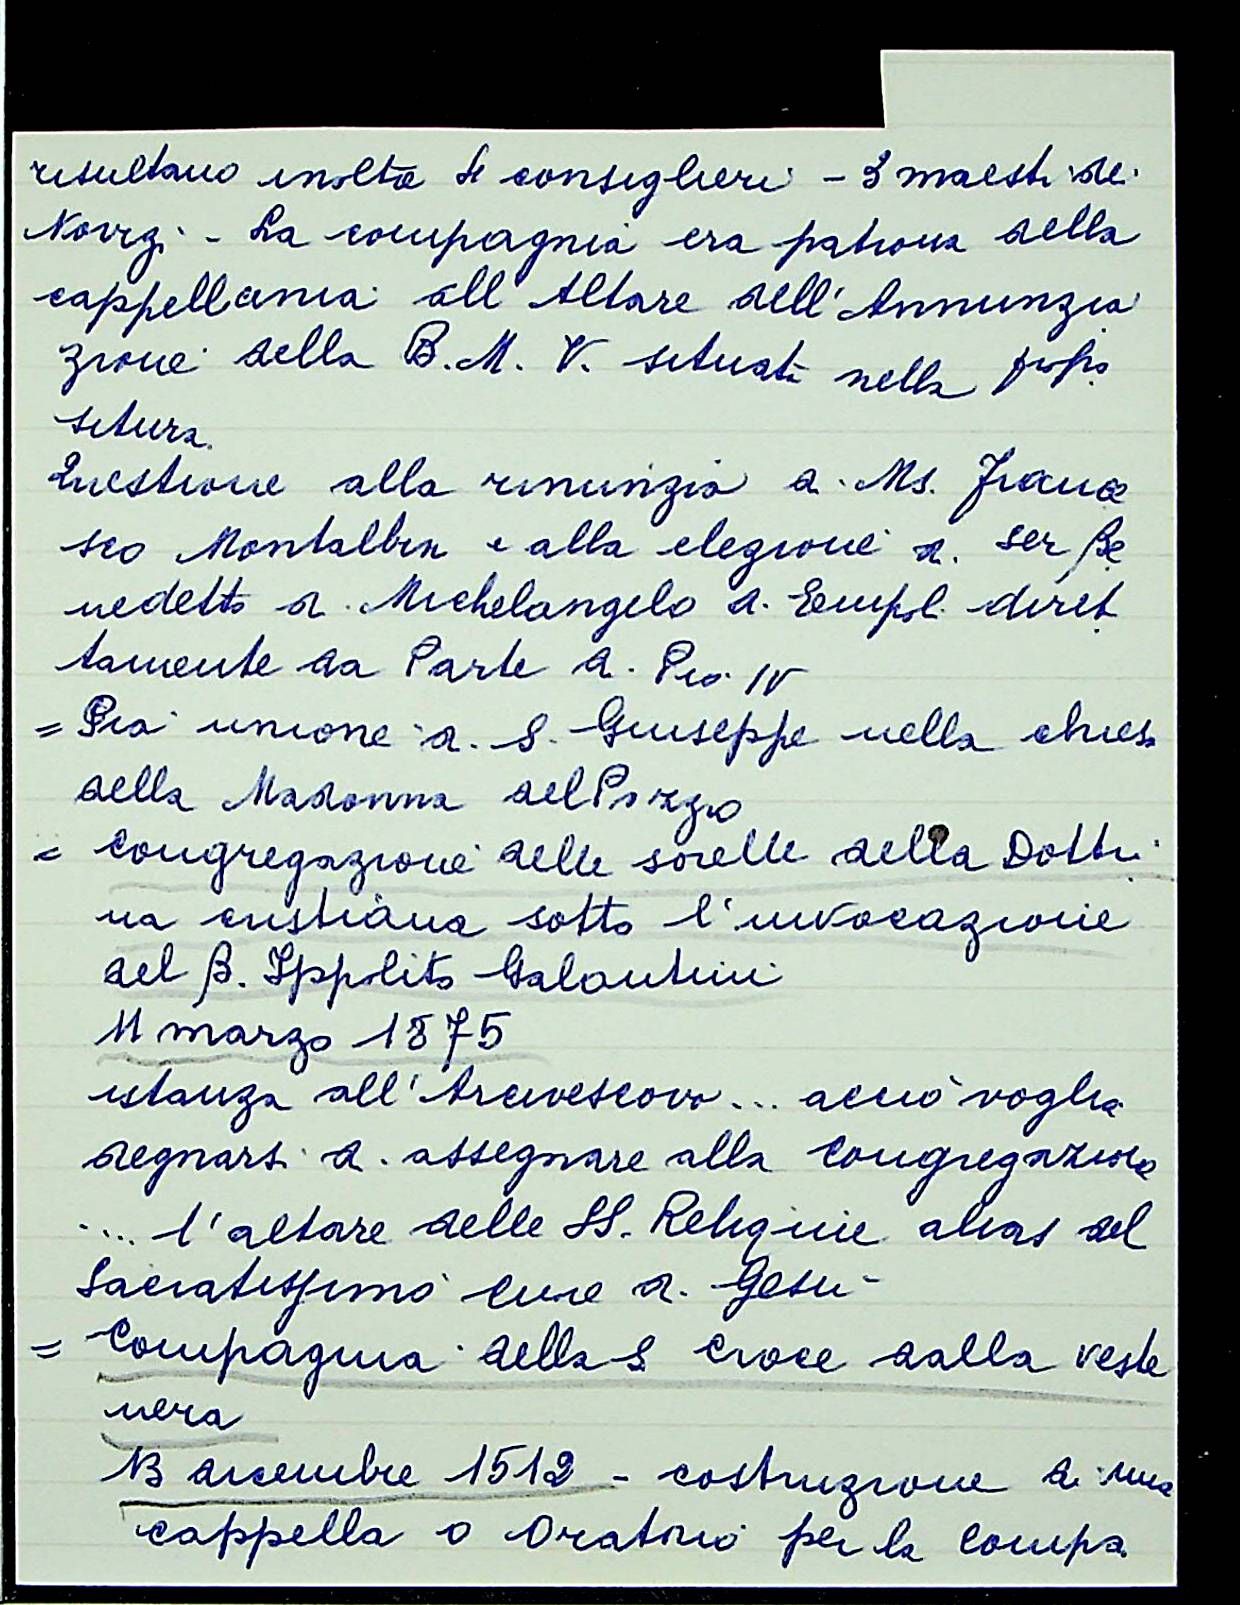 risultano inoltre 4 consiglieri - 3 maestri dei
Novizi - La compagnia era patrona della
cappellania all'Altare dell'Annunzia
zione della B.M.V. situata nella propo
situra.
Questione alla rinunzia di Ms. France
sco Montalbin e alla elezione di ser Be
nedetto di Michelangelo di Empoli diret
tamente da Parte di Pio IV
= Pia unione di S. Giuseppe nella chiesa
della Madonna del Pozzo
= Congregazione delle sorelle della Dottri
na cristiana sotto l'invocazione
del B. Ippolito Galantini
11 marzo 1875
istanza all'Arcivescovo... acciò voglia
degnarsi di assegnare alla Congregazione
... l'altare delle SS. Reliquie alias del
Sacratissimo Cuore di Gesù -
= Compagnia della S Croce dalla veste
nera
13 dicembre 1512 - costruzione di una
cappella o Oratorio per la Compa